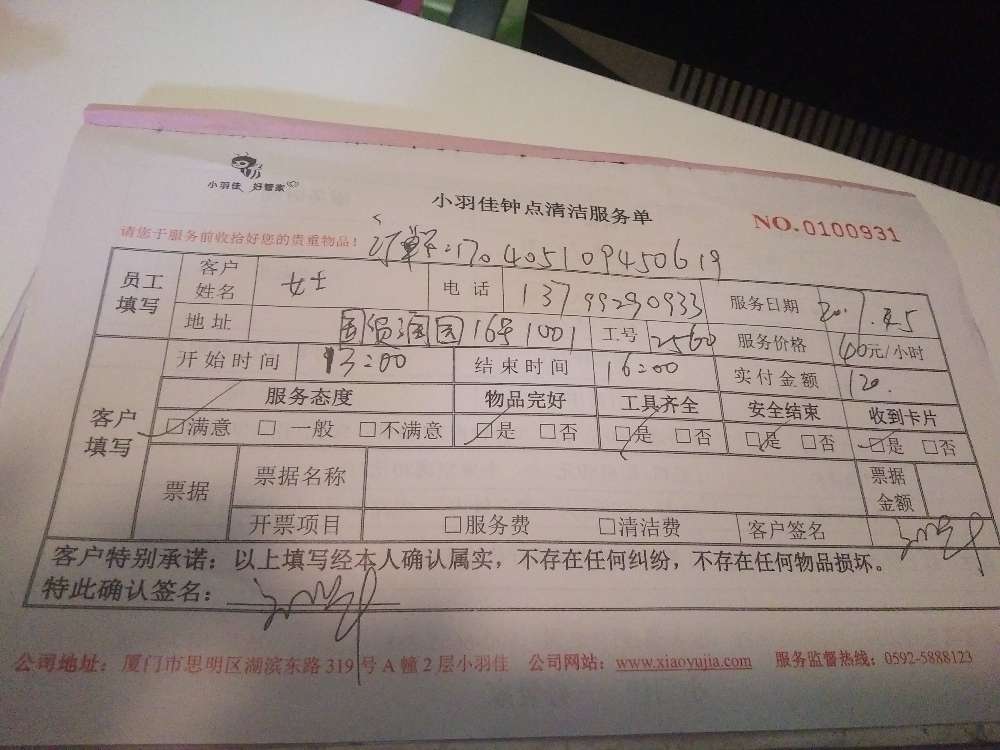 小羽佳 好管家
小羽佳钟点清洁服务单
NO.0100931
请您于服务前收拾好您的贵重物品!
订单:170405109450619
员工填写 客户姓名 女士 电话 13799290933 服务日期 2017.4.5
地址 16号1001 工号 2560 服务价格 40元/小时
客户填写 开始时间 13:00 结束时间 16:00 实付金额 120.
服务态度 物品完好 工具齐全 安全结束 收到卡片
□满意 □一般 □不满意 □是 □否 □是 □否 □是 □否 □是 □否
票据 票据名称 票据金额
开票项目 □服务费 □清洁费 客户签名
客户特别承诺:以上填写经本人确认属实,不存在任何纠纷,不存在任何物品损坏。
特此确认签名:
公司地址:厦门市思明区湖滨东路319号A幢2层小羽佳 公司网站:www.xiaoyujia.com 服务监督热线:0592-5888123